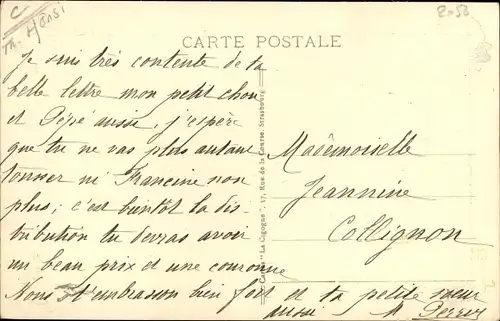 C
Th. Hansi
2-50
CARTE POSTALE
Je suis très contente de ta
belle lettre mon petit chou
et Pépé aussi, j'espère
que tu ne vas plus autant
tousser ni Francine non
plus; c'est bientôt la dis-
tribution tu devras avoir
un beau prix et une couronne
Nous t'embrasson bien fort et ta petite sœur
aussi
"La Cigogne" 17, Rue de la Course, Strasbourg
Mademoiselle
Jeannine
Collignon